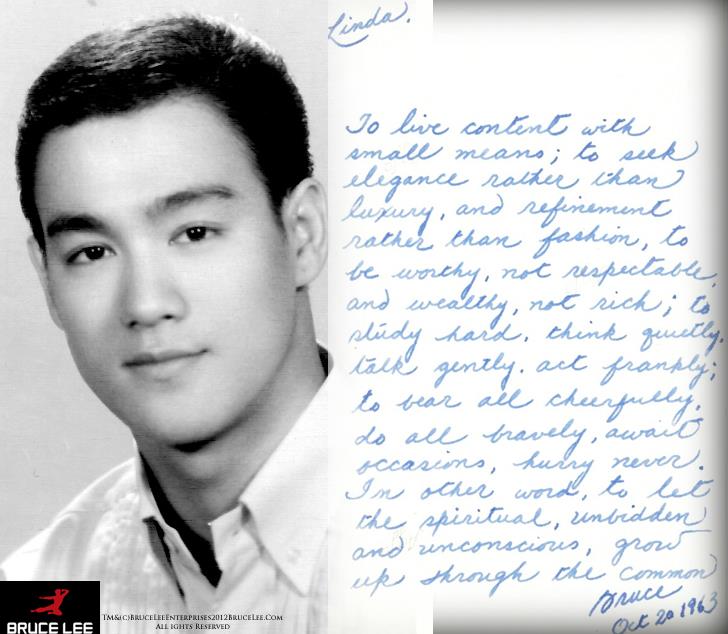 Linda.
To live content with
small means; to seek
elegance rather than
luxury, and refinement
rather than fashion, to
be worthy, not respectable,
and wealthy, not rich; to
study hard, think quietly,
talk gently, act frankly;
to bear all cheerfully,
do all bravely, await
occasions, hurry never.
In other word, to let
the spiritual, unbidden
and unconscious, grow
up through the common
Bruce
Oct 20 1963
BRUCE LEE
TM&(C)BRUCELEEENTERPRISES2012BRUCELEE.COM
ALL RIGHTS RESERVED